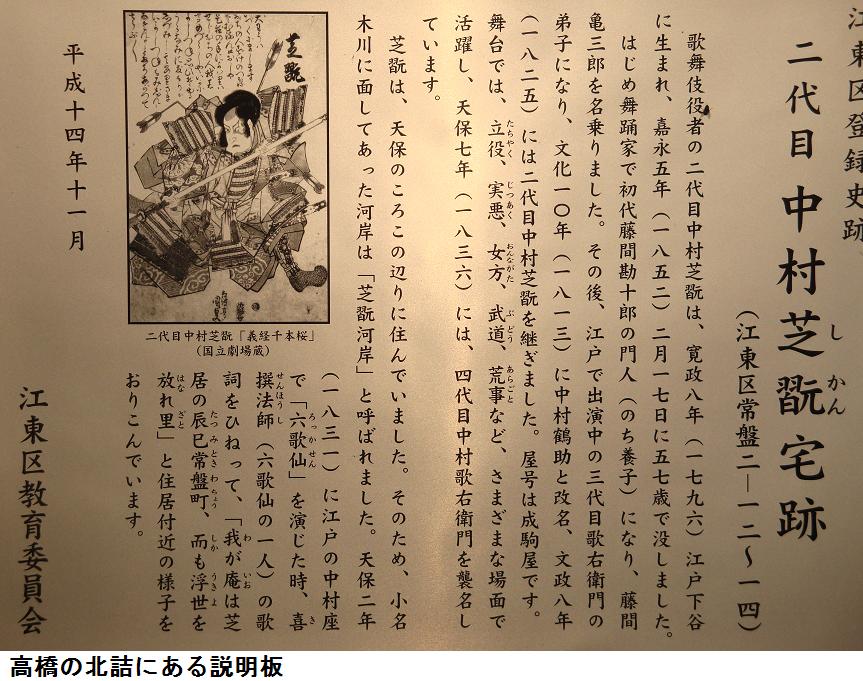 江東区登録史跡
二代目 中村芝翫宅跡
しかん
(江東区常盤二―一二〜一四)
歌舞伎役者の二代目中村芝翫は、寛政八年(一七九六)江戸下谷
に生まれ、嘉永五年(一八五二)二月一七日に五七歳で没しました。
はじめ舞踊家で初代藤間勘十郎の門人(のち養子)になり、藤間
亀三郎を名乗りました。その後、江戸で出演中の三代目歌右衛門の
弟子になり、文化一〇年(一八一三)に中村鶴助と改名、文政八年
(一八二五)には二代目中村芝翫を継ぎました。屋号は成駒屋です。
舞台では、立役、実悪、女方、武道、荒事など、さまざまな場面で
たちやく じつあく おんながた ぶどう あらごと
活躍し、天保七年(一八三六)には、四代目中村歌右衛門を襲名し
ています。
芝翫は、天保のころこの辺りに住んでいました。そのため、小名
木川に面してあった河岸は「芝翫河岸」と呼ばれました。天保二年
(一八三一)に江戸の中村座
で「六歌仙」を演じた時、喜
ろっかせん き
撰法師(六歌仙の一人)の歌
せんほうし
詞をひねって、「我が庵は芝
わ いお
居の辰巳常盤町、而も浮世を
たつみときわちょう しか うきよ
放れ里」と住居付近の様子を
はな ざと
おりこんでいます。
芝翫
二代目中村芝翫「義経千本桜」
(国立劇場蔵)
平成十四年十一月
江東区教育委員会
高橋の北詰にある説明板